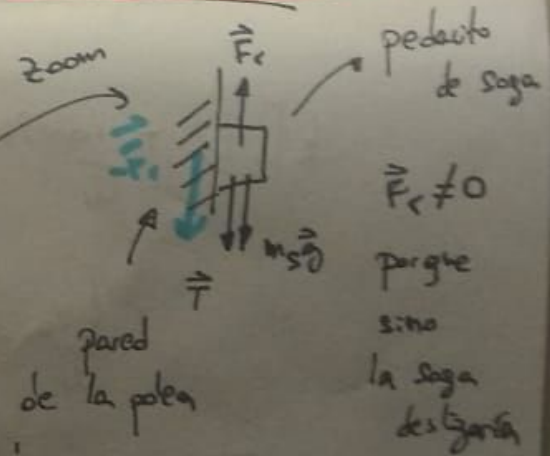 zoom
F⃗r
pedacito
de soga
-F⃗r
F⃗r ≠ 0
m_s g⃗
T⃗
porque
sino
la soga
deslizaría
pared
de la polea